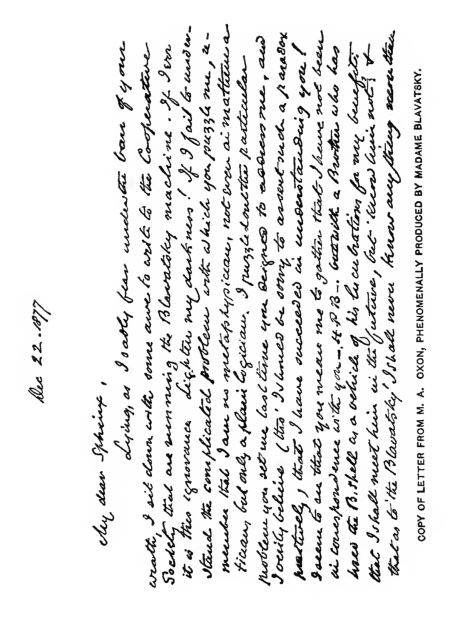 Dec 22. 1877
My dear Sphinx,
Lying, as I sadly fear under the ban of your
wrath, I sit down with some awe to write to the Cooperative
Society that are running the Blavatsky machine. If I err
it is thro ignorance. Lighten my darkness! If I fail to under-
stand the complicated problem with which you puzzle me, re-
member that I am no metaphysician, not even a mathema-
tician, but only a plain logician. I puzzle about the particular
problem you set me last time you deigned to address me, and
I verily believe (tho' I should be sorry to assert such a paradox
positively) that I have succeeded in understanding you!
I seem to see that you mean me to gather that I have not been
in correspondence with you - H P B - but with a Brother who has
used the B. shell as a vehicle of his lucubrations for my benefit:
that I shall meet him in the future, but know him not; &
that as to 'the Blavatsky' I shall never know anything more than
COPY OF LETTER FROM M. A. OXON, PHENOMENALLY PRODUCED BY MADAME BLAVATSKY.